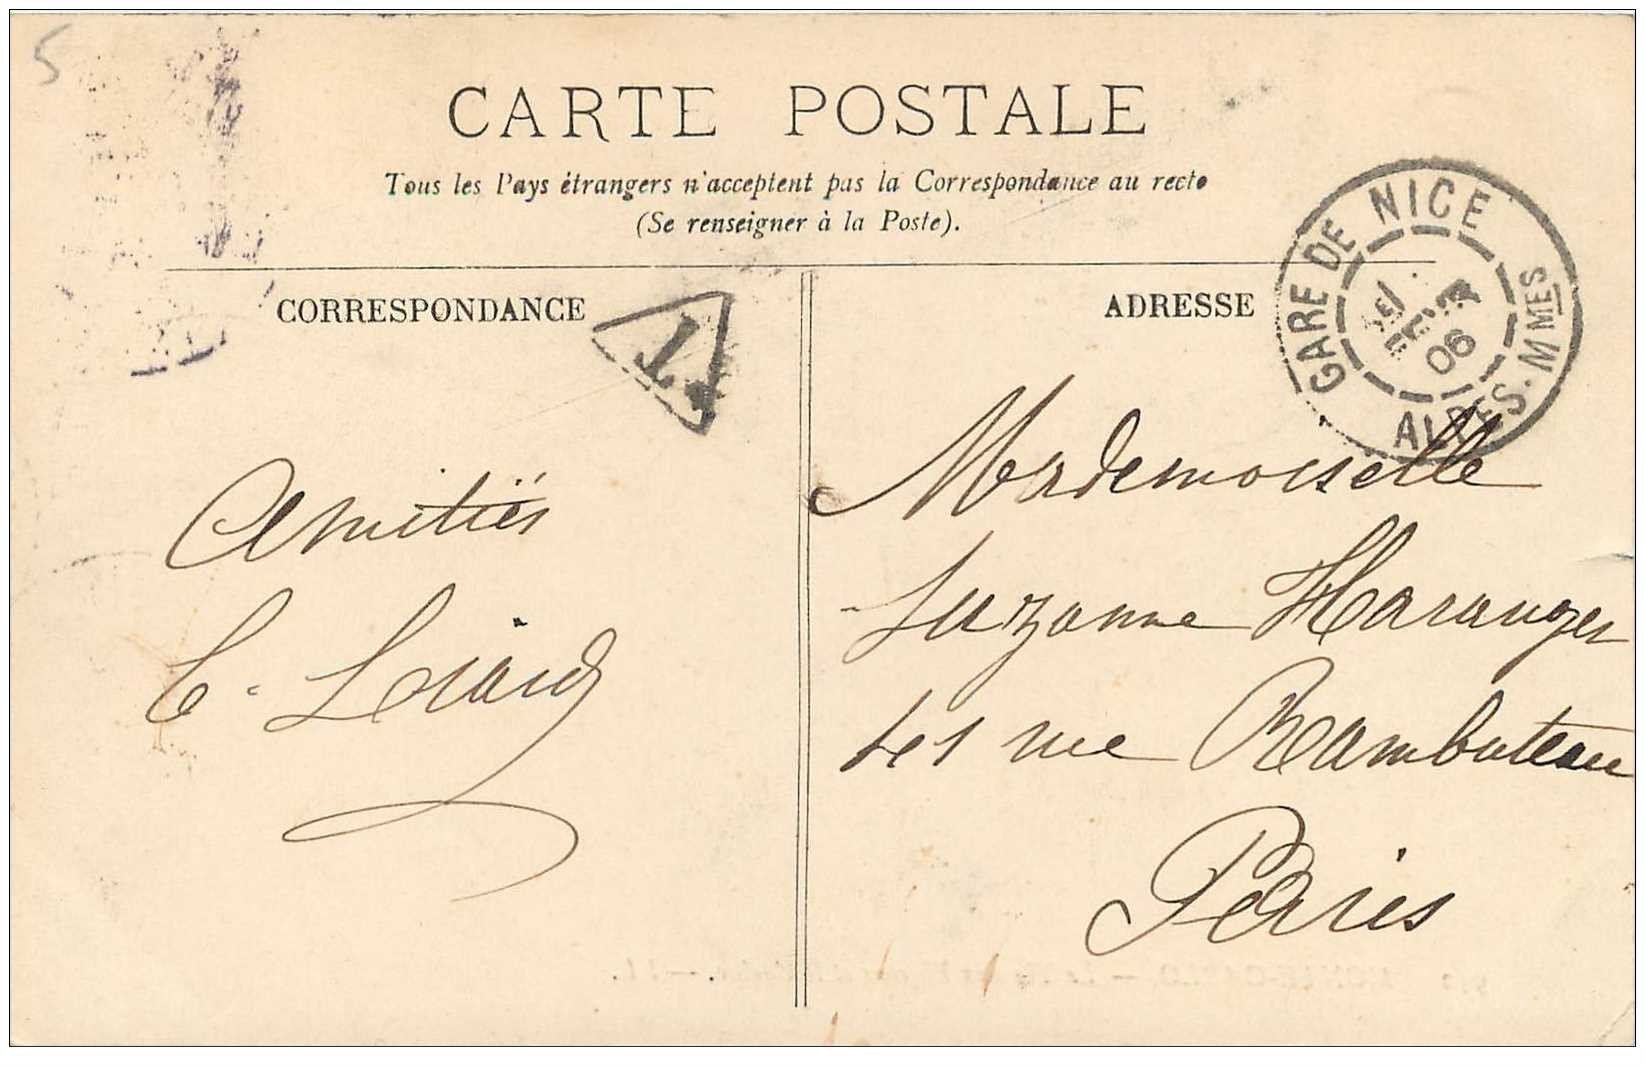 5
CARTE POSTALE
Tous les Pays étrangers n'acceptent pas la Correspondance au recto
(Se renseigner à la Poste).
CORRESPONDANCE
T
ADRESSE
GARE DE NICE
FEVR
06
ALPES-MMES
Amitiés
Mademoiselle
Suzanne Haranger
rue Rambuteau
Paris